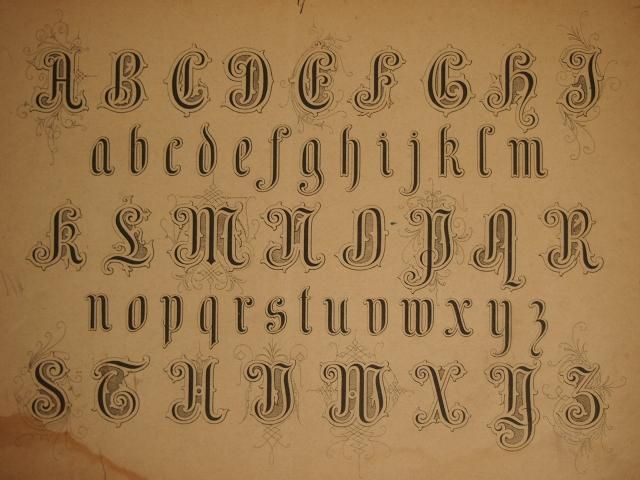 A B C D E F G H I
a b c d e f g h i j k l m
K L M N O P Q R
n o p q r s t u v w x y z
S T U V W X Y Z